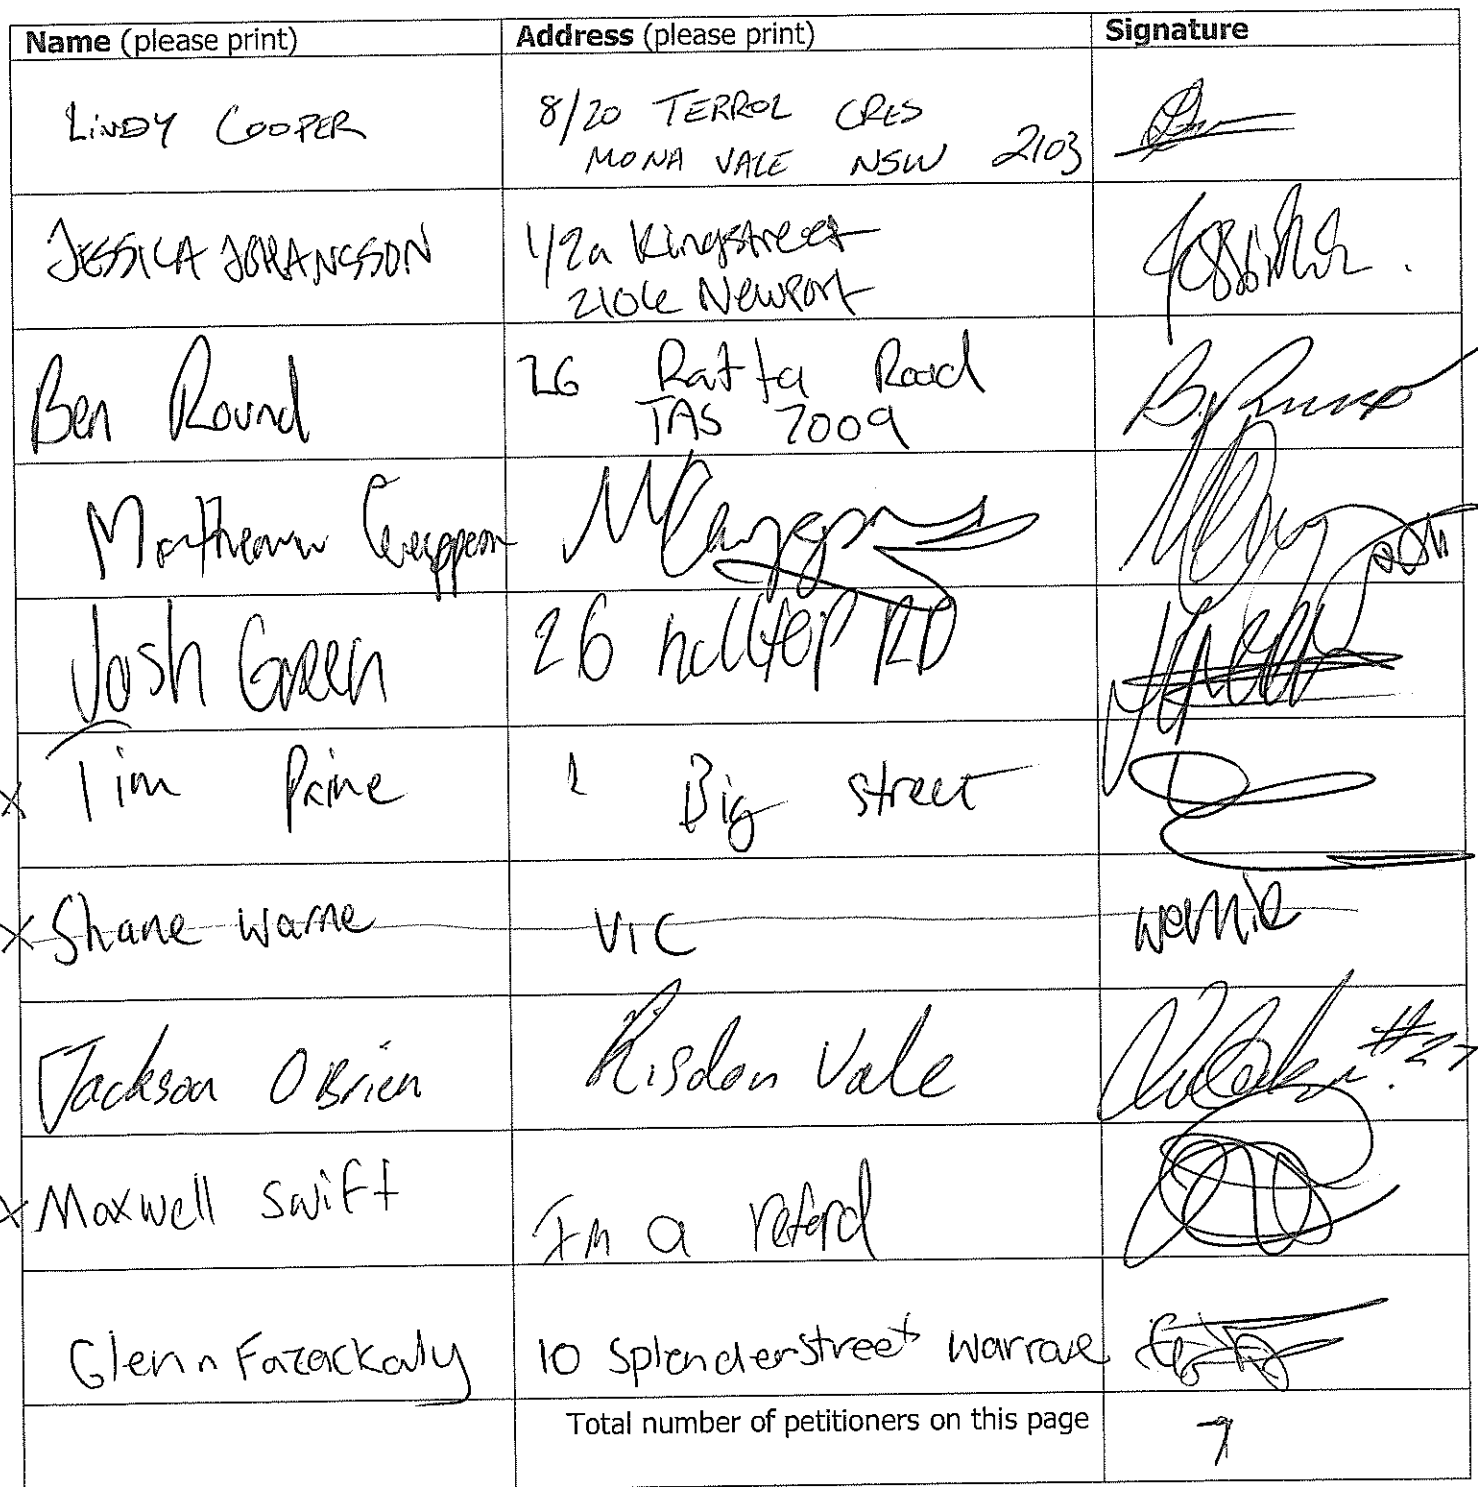 Name (please print) Address (please print) Signature
LINDY COOPER 8/20 TERROL CRES
MONA VALE NSW 2103
JESSICA JOHANSSON 1/2a Kingstreet
2106 Newport
Ben Round 26 Ratta Road
TAS 7009
Josh Green 26 hilltop RD
X Tim Paine 1 Big street
X Shane Warne VIC warnie
Jackson O Brien Risdon Vale #27
X Maxwell Swift Im a retard
Glenn Fazackaly 10 Splenderstreet Warrane
Total number of petitioners on this page 7